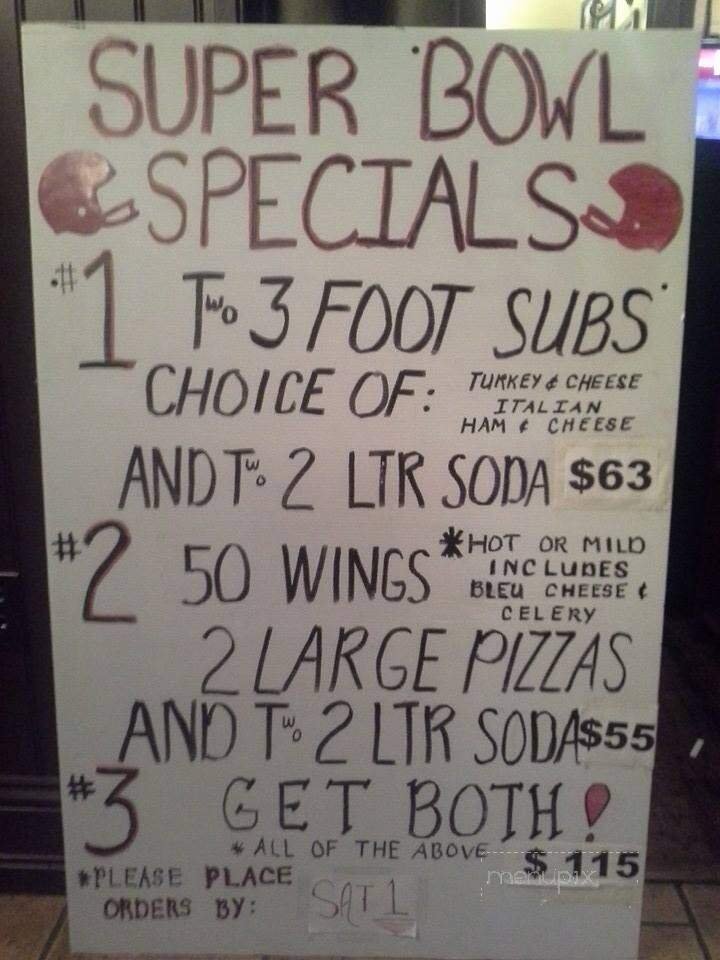 SUPER BOWL
SPECIALS
#1 Two 3 FOOT SUBS
CHOICE OF: TURKEY & CHEESE
ITALIAN
HAM & CHEESE
AND Two 2 LTR SODA $63
#2 50 WINGS *HOT OR MILD
INCLUDES
BLEU CHEESE &
CELERY
2 LARGE PIZZAS
AND Two 2 LTR SODA $55
#3 GET BOTH!
* ALL OF THE ABOVE $115
menupix
*PLEASE PLACE
ORDERS BY: SAT 1